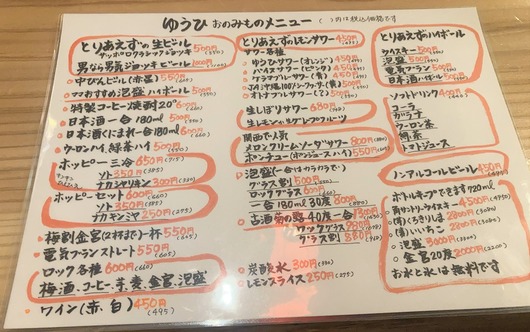 ゆうひ おのみものメニュー ( )内は税込価格です
とりあえずの生ビール 500円
サッポロクラシック中ジョッキ
男なら男気ジョッキビール 1000円
中びんビール(赤星) 550円
ママおすすめ泡盛ハイボール 500円
特製コーヒー焼酎20° 600円
日本酒一合 180ml 500円
日本酒くにまれ一合 180ml 600円
ウーロンハイ、緑茶ハイ 500円
ホッピー三冷 650円 (715)
ソト 350円 (385)
ナカキンミヤ 300円 (330)
ホッピーセット 600円 (660)
ソト 350円 (385)
ナカキンミヤ 250円 (275)
梅割金宮(2杯まで)一杯 550円
電気ブランストレート 550円 (605)
ロック各種 600円 (660)
梅酒、コーヒー、芋、麦、金宮、泡盛
ワイン(赤、白) 450円 (495)
とりあえずのレモンサワー 500円
サワー各種
ゆうひサワー(オレンジ) 500円
パイヌサワー(ピンク) 450円
オトナブルサワー(?) 500円
生しぼりサワー 680円
生レモンor生グレープフルーツ
関西で人気
メロンクリームソーダサワー 800円 (880)
ポンチュー(ポンジュースハイ) 550円
泡盛(一合はカラカラで)
グラス割 500円 (550)
ロックグラス 600円 (660)
一合 180ml 30度 800円 (880)
古酒 40度一合 1300円
ロックグラス 880円
グラス割 880円
炭酸水 300円 (330)
レモンスライス 250円 (275)
とりあえずのハイボール
ウイスキー 500円
泡盛 500円
電気ブラン 500円
日本酒ハイボール 500円
ソフトドリンク 400円
コーラ
ガラナ
ウーロン茶
緑茶
トマトジュース
ノンアルコールビール 450円 (495)
ボトルキープできます 720ml
(芋)くろきりしま 2800円 (3080)
(麦)いいちこ 2800円 (3080)
泡盛 3000円 (3300)
金宮20度 2000円 (2200)
お水と氷は無料です